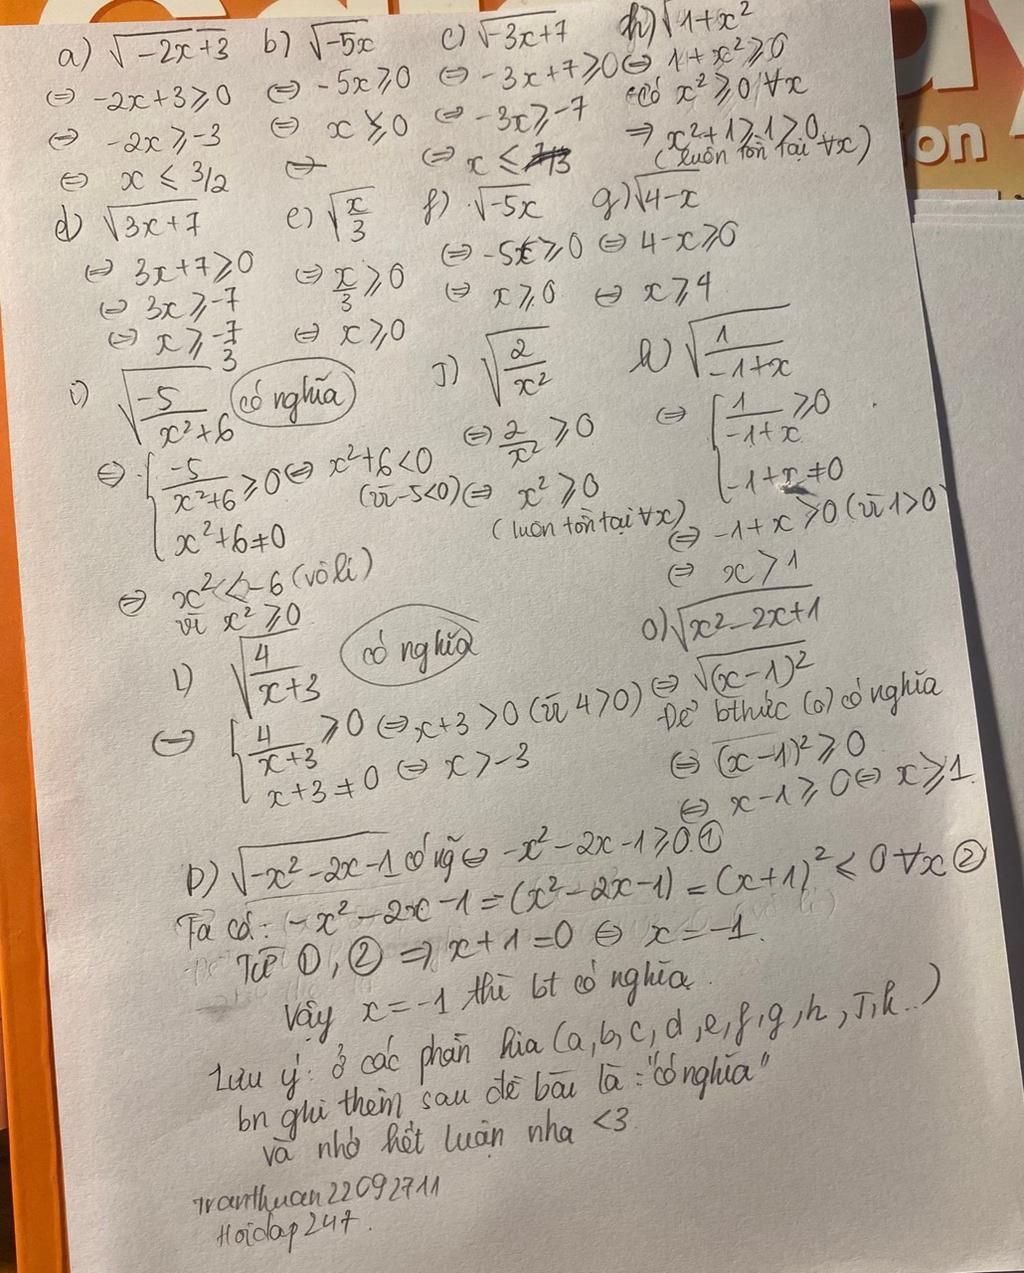 a) √-2x+3 b) √-5x c) √-3x+7 h) √1+x²
⇔ -2x+3 ⩾ 0 ⇔ -5x ⩾ 0 ⇔ -3x+7 ⩾ 0 ⇔ 1+x² ⩾ 0
⇔ -2x ⩾ -3 ⇔ x ⩽ 0 ⇔ -3x ⩾ -7 có x² ⩾ 0 ∀x
⇔ x ⩽ 3/2 ⇔ ⇔ x ⩽ 7/3 ⇒ x²+1 ⩾ 1 ⩾ 0
(luôn tồn tại ∀x)
on
d) √3x+7 e) √x/3 f) √-5x g) √4-x
⇔ 3x+7 ⩾ 0 ⇔ x/3 ⩾ 0 ⇔ -5x ⩾ 0 ⇔ 4-x ⩾ 0
⇔ 3x ⩾ -7 ⇔ x ⩾ 0 ⇔ x ⩾ 0 ⇔ x ⩾ 4
⇔ x ⩾ -7/3
i) √-5/x²+6 có nghĩa J) √2/x² k) √1/-1+x
⇔ { -5/x²+6 ⩾ 0 ⇔ x²+6 < 0 ⇔ 2/x² ⩾ 0 ⇔ { 1/-1+x ⩾ 0
x²+6 ≠ 0 (vì -5<0) ⇔ x² ⩾ 0 -1+x ≠ 0
(luôn tồn tại ∀x) ⇔ -1+x ⩾ 0 (vì 1>0)
⇔ x² < -6 (vô lí) ⇔ x > 1
vì x² ⩾ 0
l) √4/x+3 có nghĩa o) √x²-2x+1
⇔ { 4/x+3 ⩾ 0 ⇔ x+3 > 0 (vì 4>0) ⇔ √(x-1)²
x+3 ≠ 0 ⇔ x > -3 Để bthức (o) có nghĩa
⇔ (x-1)² ⩾ 0
⇔ x-1 ⩾ 0 ⇔ x ⩾ 1
p) √-x²-2x-1 có ng ⇔ -x²-2x-1 ⩾ 0 ①
Ta có: -x²-2x-1 = (x²-2x-1) = (x+1)² < 0 ∀x ②
Từ ①, ② ⇒ x+1 = 0 ⇔ x = -1.
Vậy x = -1 thì bt có nghĩa.
Lưu ý: ở các phần kia (a, b, c, d, e, f, g, h, J, k..)
bn ghi thêm sau đề bài là: "có nghĩa"
và nhớ kết luận nha <3
tranthuan22092711
Hoidap247.